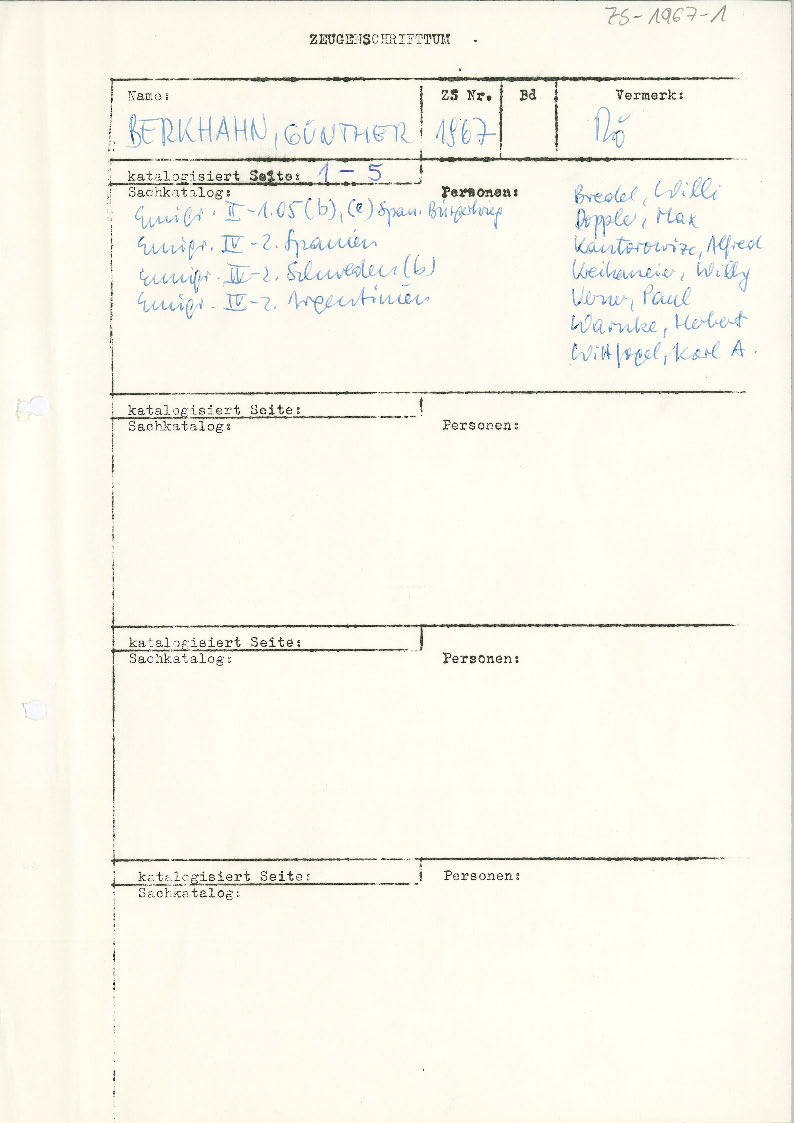 ZS-1967-1
ZEUGENSCHRIFTTUM
Name: ZS Nr. Bd Vermerk:
BERKHAHN, GÜNTHER 1967 Rö
katalogisiert Seite: 1-5
Sachkatalog: Personen:
Emigr. II-1.05(b),(e) Span. Bürgerkrieg
Emigr. IV-2. Spanien
Emigr. IV-2. Schweden(b)
Emigr. IV-2. Argentinien
Bredel, Willi
Doppler, Max
Kantorowizc, Alfred
Willy
Verner, Paul
Warnke, Herbert
Wittfogel, Karl A.
katalogisiert Seite:
Sachkatalog: Personen:
katalogisiert Seite:
Sachkatalog: Personen:
katalogisiert Seite: Personen:
Sachkatalog: